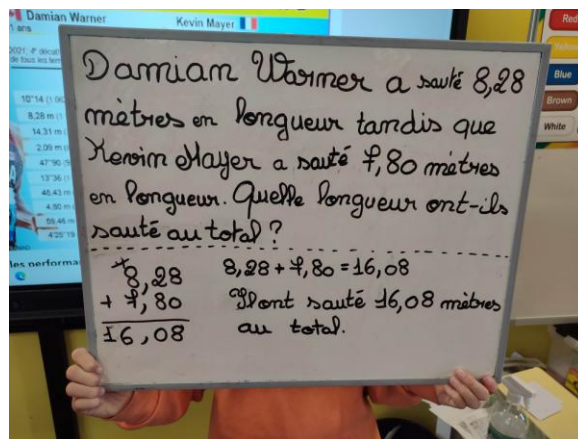 Damian Warner
Kevin Mayer
1 ans
10"14
8,28 m
14,31 m
2,09 m
47"90
13"36
4,80 m
4'25"19
Red
Blue
Brown
White
Damian Warner a sauté 8,28
mètres en longueur tandis que
Kevin Mayer a sauté 7,80 mètres
en longueur. Quelle longueur ont-ils
sauté au total ?
+
8,28
+ 7,80
16,08
8,28 + 7,80 = 16,08
Ils ont sauté 16,08 mètres
au total.